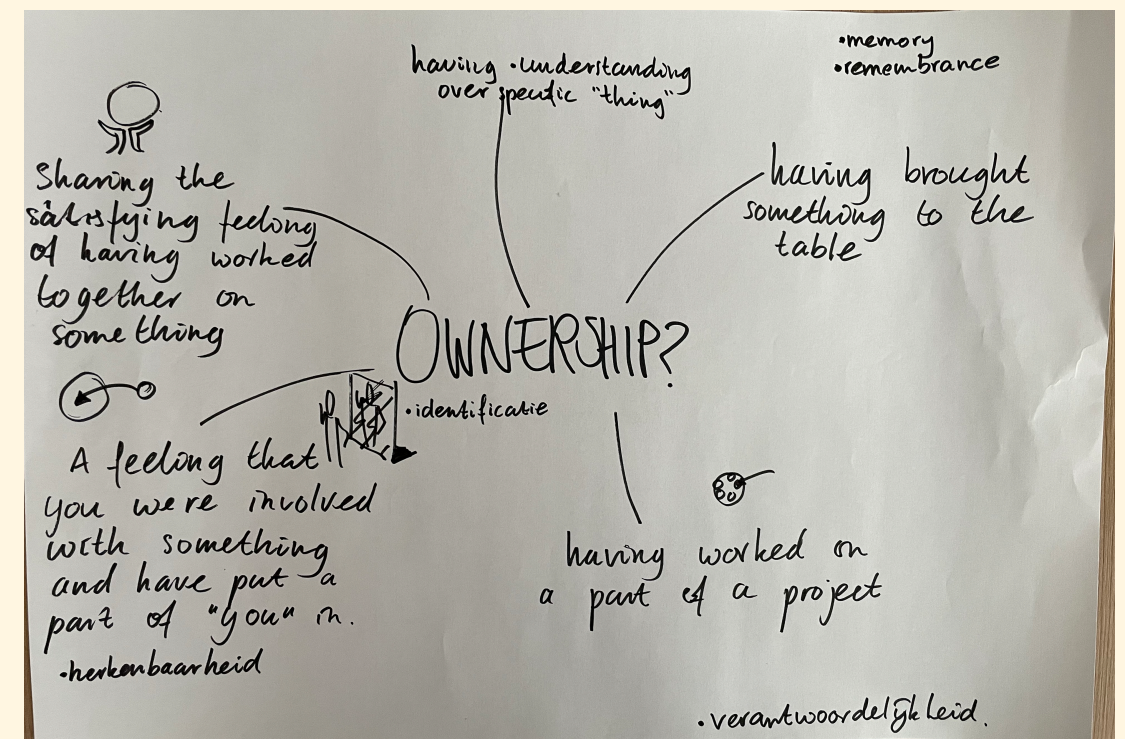 having • understanding
over specific "thing"
• memory
• remembrance
Sharing the
satisfying feeling
of having worked
together on
something
having brought
something to the
table
OWNERSHIP?
• identificatie
A feeling that
you were involved
with something
and have put a
part of "you" in.
• herkenbaarheid
having worked on
a part of a project
• verantwoordelijkheid.